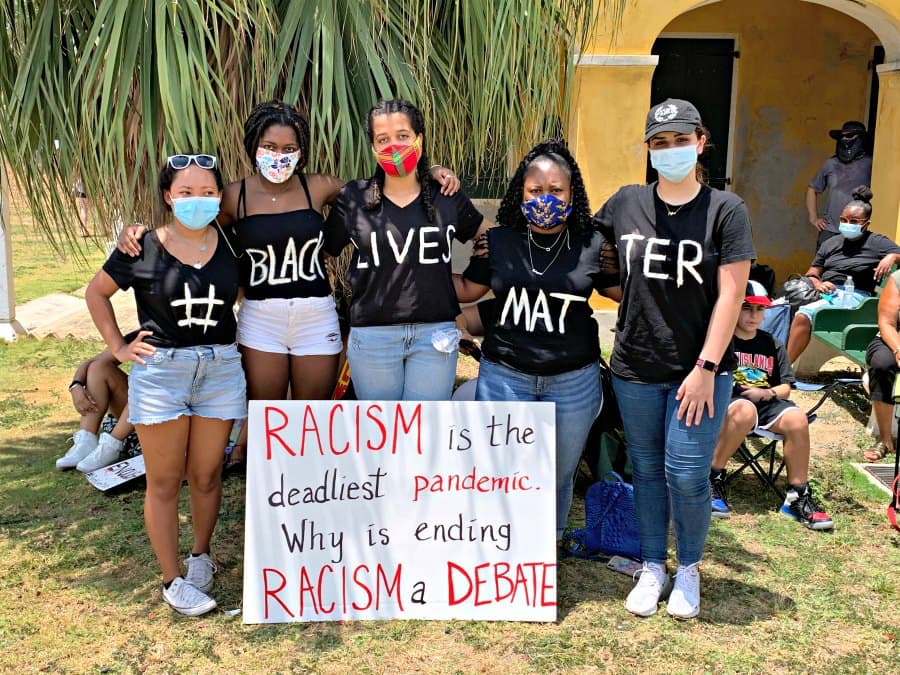 # BLACK LIVES MAT TER
RACISM is the
deadliest pandemic.
Why is ending
RACISM a DEBATE
ISLAND